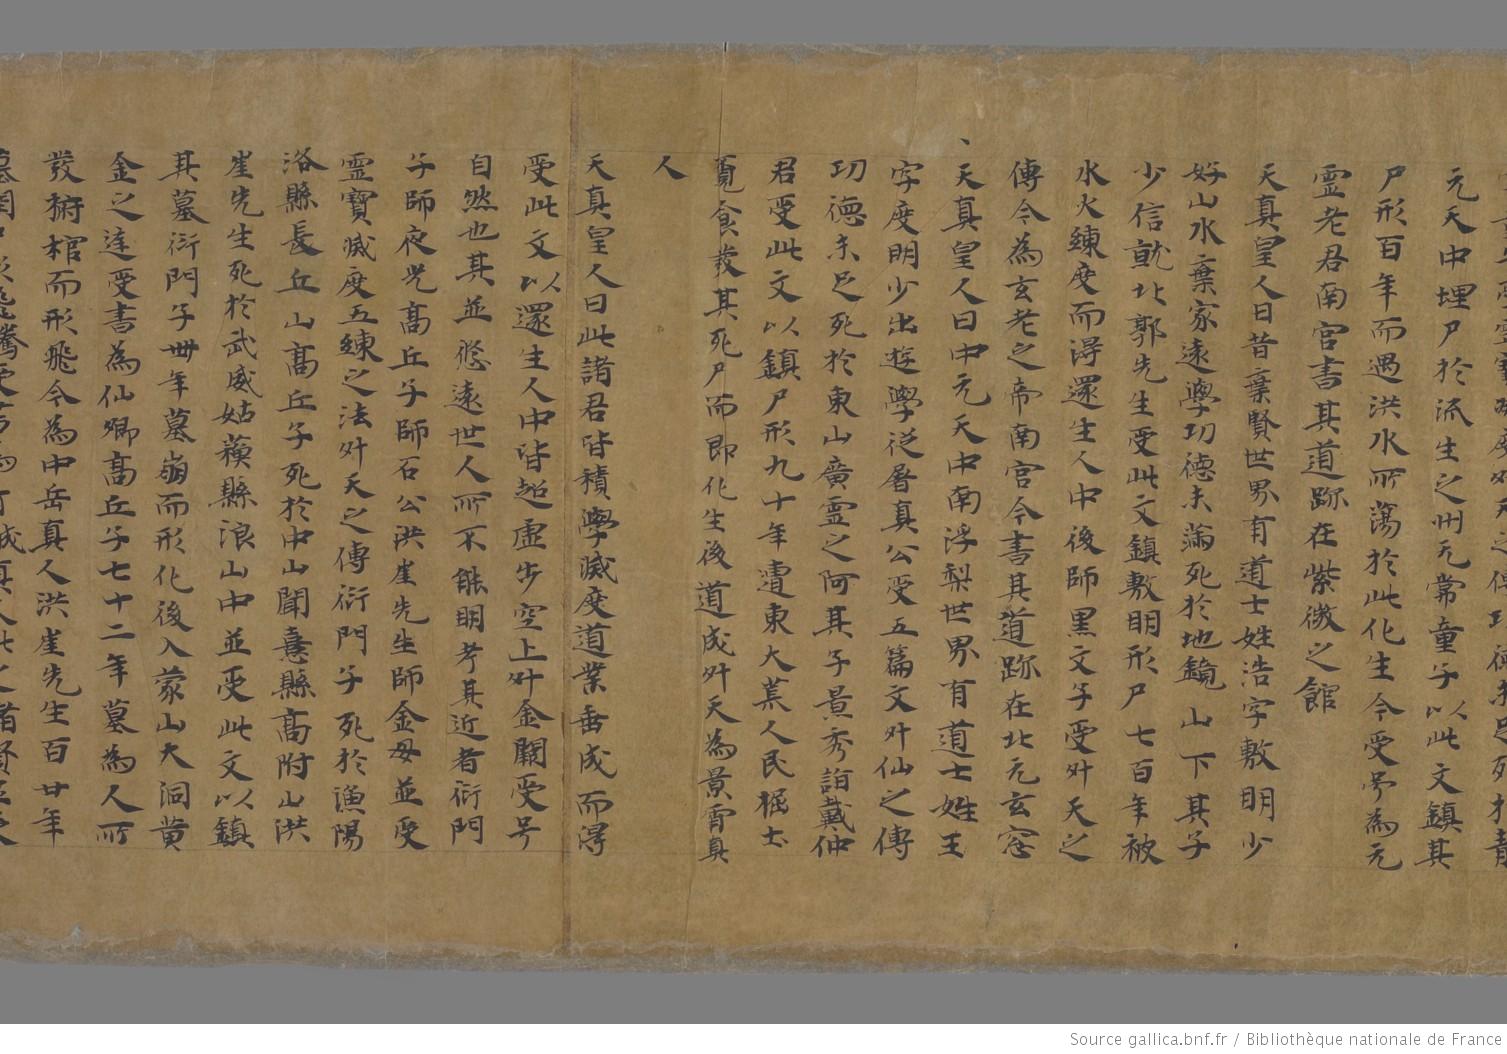 元天中埋尸於流生之州元常童子以此文鎮其
尸形百年而遇洪水所蕩於此化生今受号為元
靈老君南宮書其道跡在紫微之館
天真皇人曰昔棄賢世界有道士姓浩字敷明少
好山水棄家遠學功德未滿死於地鏡山下其子
少信就北郭先生受此文鎮敷明形尸七百年被
水火練度而得還生人中後師黑文子受昇天之
傳今為玄老之帝南宮今書其道跡在北元玄窓
天真皇人曰中元天中南浮梨世界有道士姓王
字度明少出遊學從層真公受五篇文昇仙之傳
功德未足死於東山廣靈之阿其子景秀詣戴仲
君受此文以鎮尸形九十年遭東大荒人民掘土
覓食發其死尸而即化生後道成昇天為景霄真
人
天真皇人曰此諸君皆積學滅度道業垂成而得
受此文以還生人中皆超虛步空上昇金闕受号
自然也其並悠遠世人所不能明考其近者衍門
子師夜光高丘子師石公洪崖先生師金母並受
靈寶滅度五練之法昇天之傳衍門子死於漁陽
洛縣長丘山高丘子死於中山聞憙縣高附山洪
崖先生死於武威姑蘓縣浪山中並受此文以鎮
其墓衍門子卌年墓崩而形化後入蒙山大洞黄
金之逹受書為仙卿高丘子七十二年墓為人所
發掊棺而形飛今為中岳真人洪崖先生百廿年
Source gallica.bnf.fr / Bibliothèque nationale de France